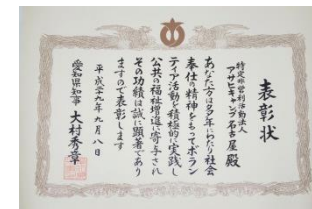 表彰状
特定非営利活動法人
アサヒキャンプ名古屋 殿
あなた方は多年にわたり社会
奉仕の精神をもってボラン
ティア活動を積極的に実践し
公共の福祉増進に寄与され
その功績は誠に顕著であり
ますので表彰します
平成二十九年九月八日
愛知県知事 大村秀章